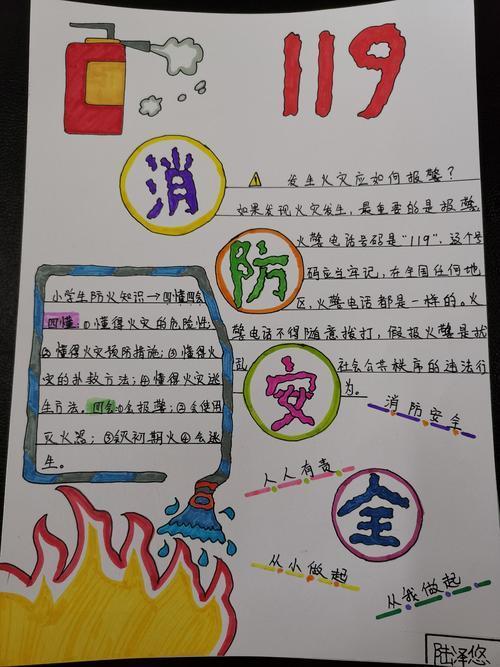 119
消
防
安
全
⚠ 发生火灾应如何报警？
如果发现火灾发生，最重要的是报警，
火警电话号码是“119”，这个号
码应当牢记，在全国任何地
区，火警电话都是一样的。火
警电话不得随意拨打，假报火警是扰
乱社会公共秩序的违法行
为。
小学生防火知识→四懂四会
四懂：①懂得火灾的危险性
②懂得火灾预防措施；③懂得火
灾的扑救方法；④懂得火灾逃
生方法。四会①会报警；②会使用
灭火器；③会灭初期火④会逃
生。
消防安全
人人有责
从小做起
从我做起
陆泽悠